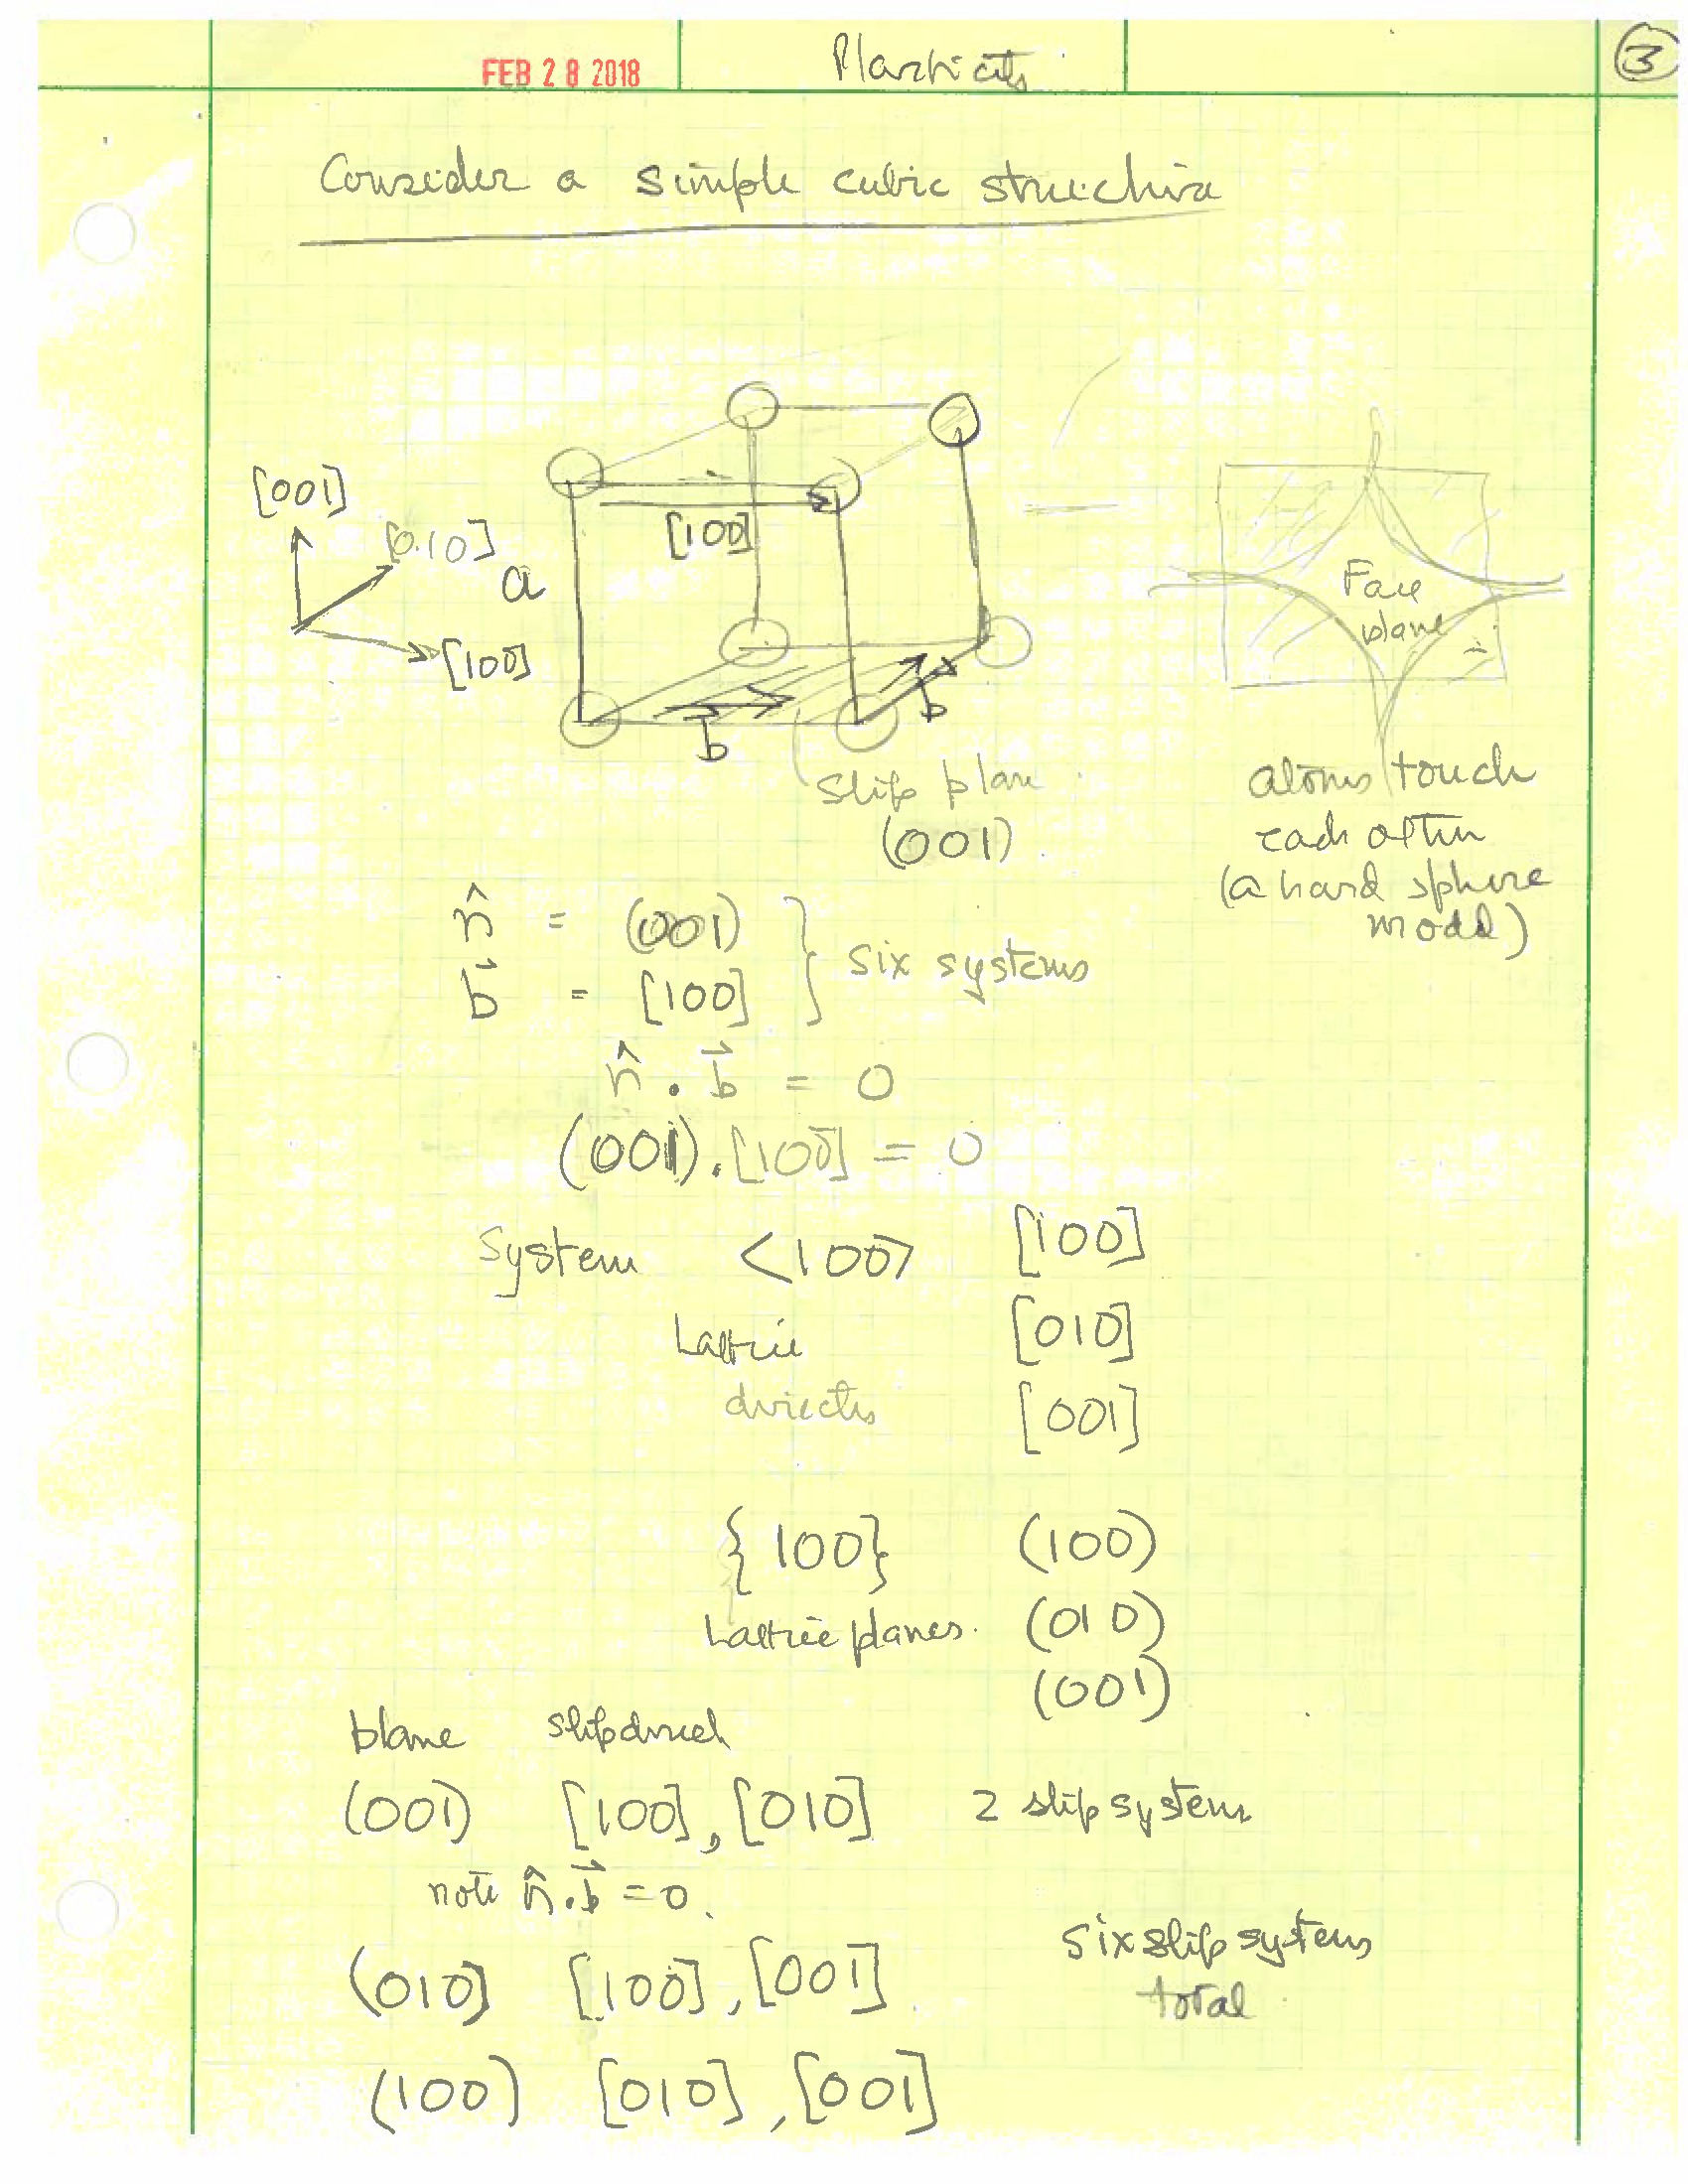 FEB 28 2018
Plasticity
3
Consider a simple cubic structure
[001]
[010]
[100]
a
[100]
b
b
slip plane
(001)
Face
plane
atoms touch
each other
(a hard sphere
model)
n̂ = (001) } six systems
b⃗ = [100]
n̂ . b⃗ = 0
(001).[100] = 0
System <100> [100]
Lattice [010]
directs [001]
{100} (100)
Lattice planes. (010)
(001)
plane slip direct
(001) [100], [010] 2 slip systems
note n̂.b⃗ = 0.
(010) [100], [001]
six slip systems
total
(100) [010], [001]